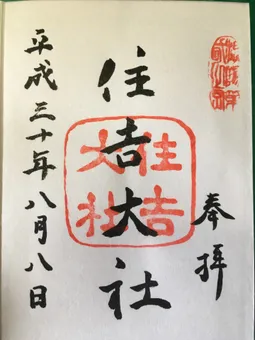 奉拝
住吉大社
住吉
大社
平成三十年八月八日